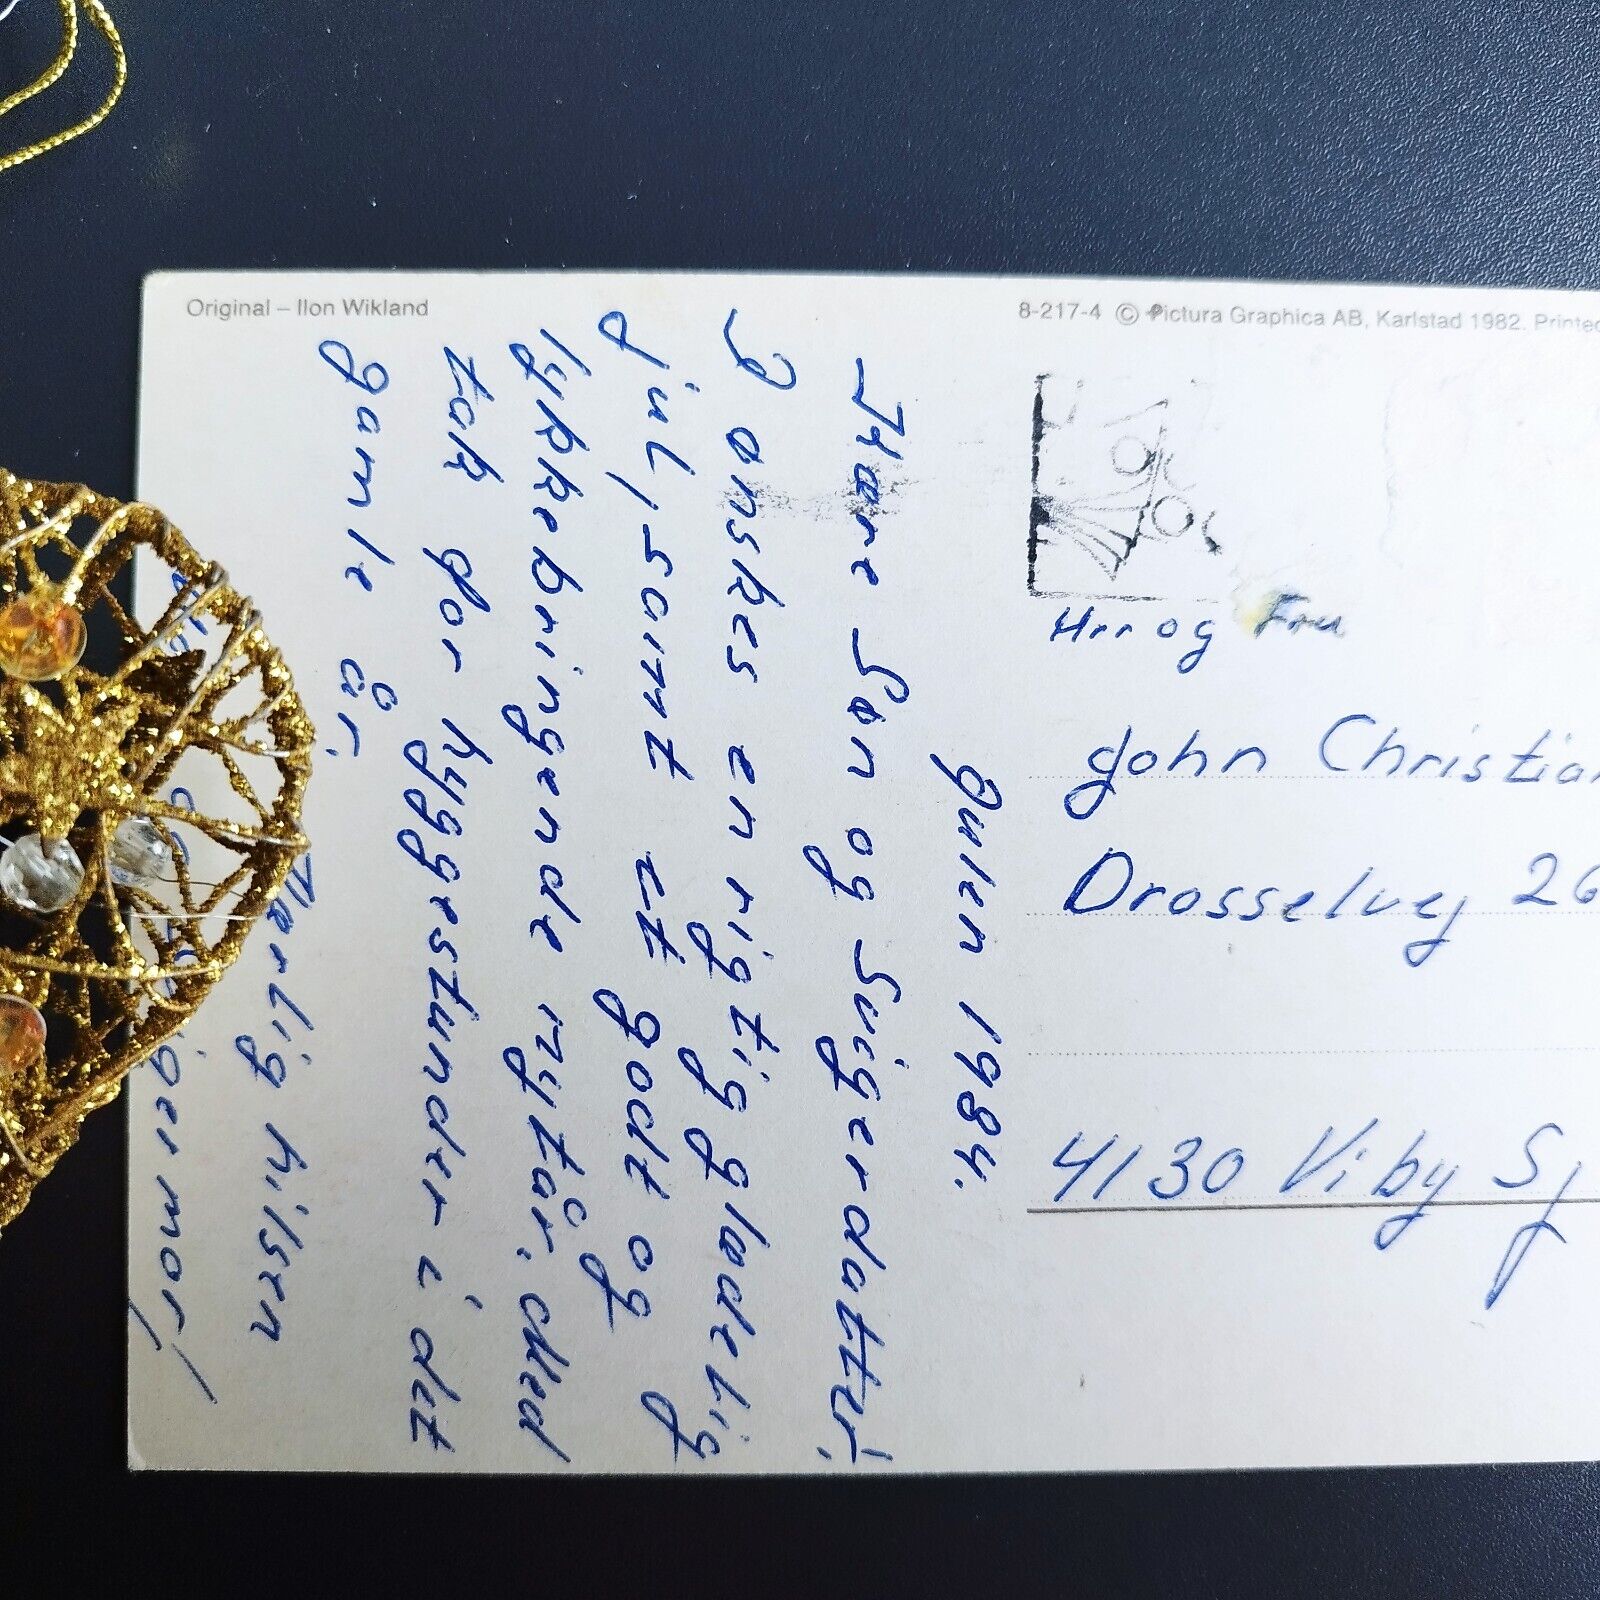 Original – Ilon Wikland
8-217-4 © Pictura Graphica AB, Karlstad 1982. Printed
Julen 1984.
Kære Søn og Svigerdatter!
I ønskes en rigtig glædelig
jul, samt et godt og
lykkebringende nytår, Med
tak for hyggestunder i det
gamle år.
Kærlig hilsen
mor!
Hrr og Fru
John Christian
Drosselvej 26
4130 Viby Sj